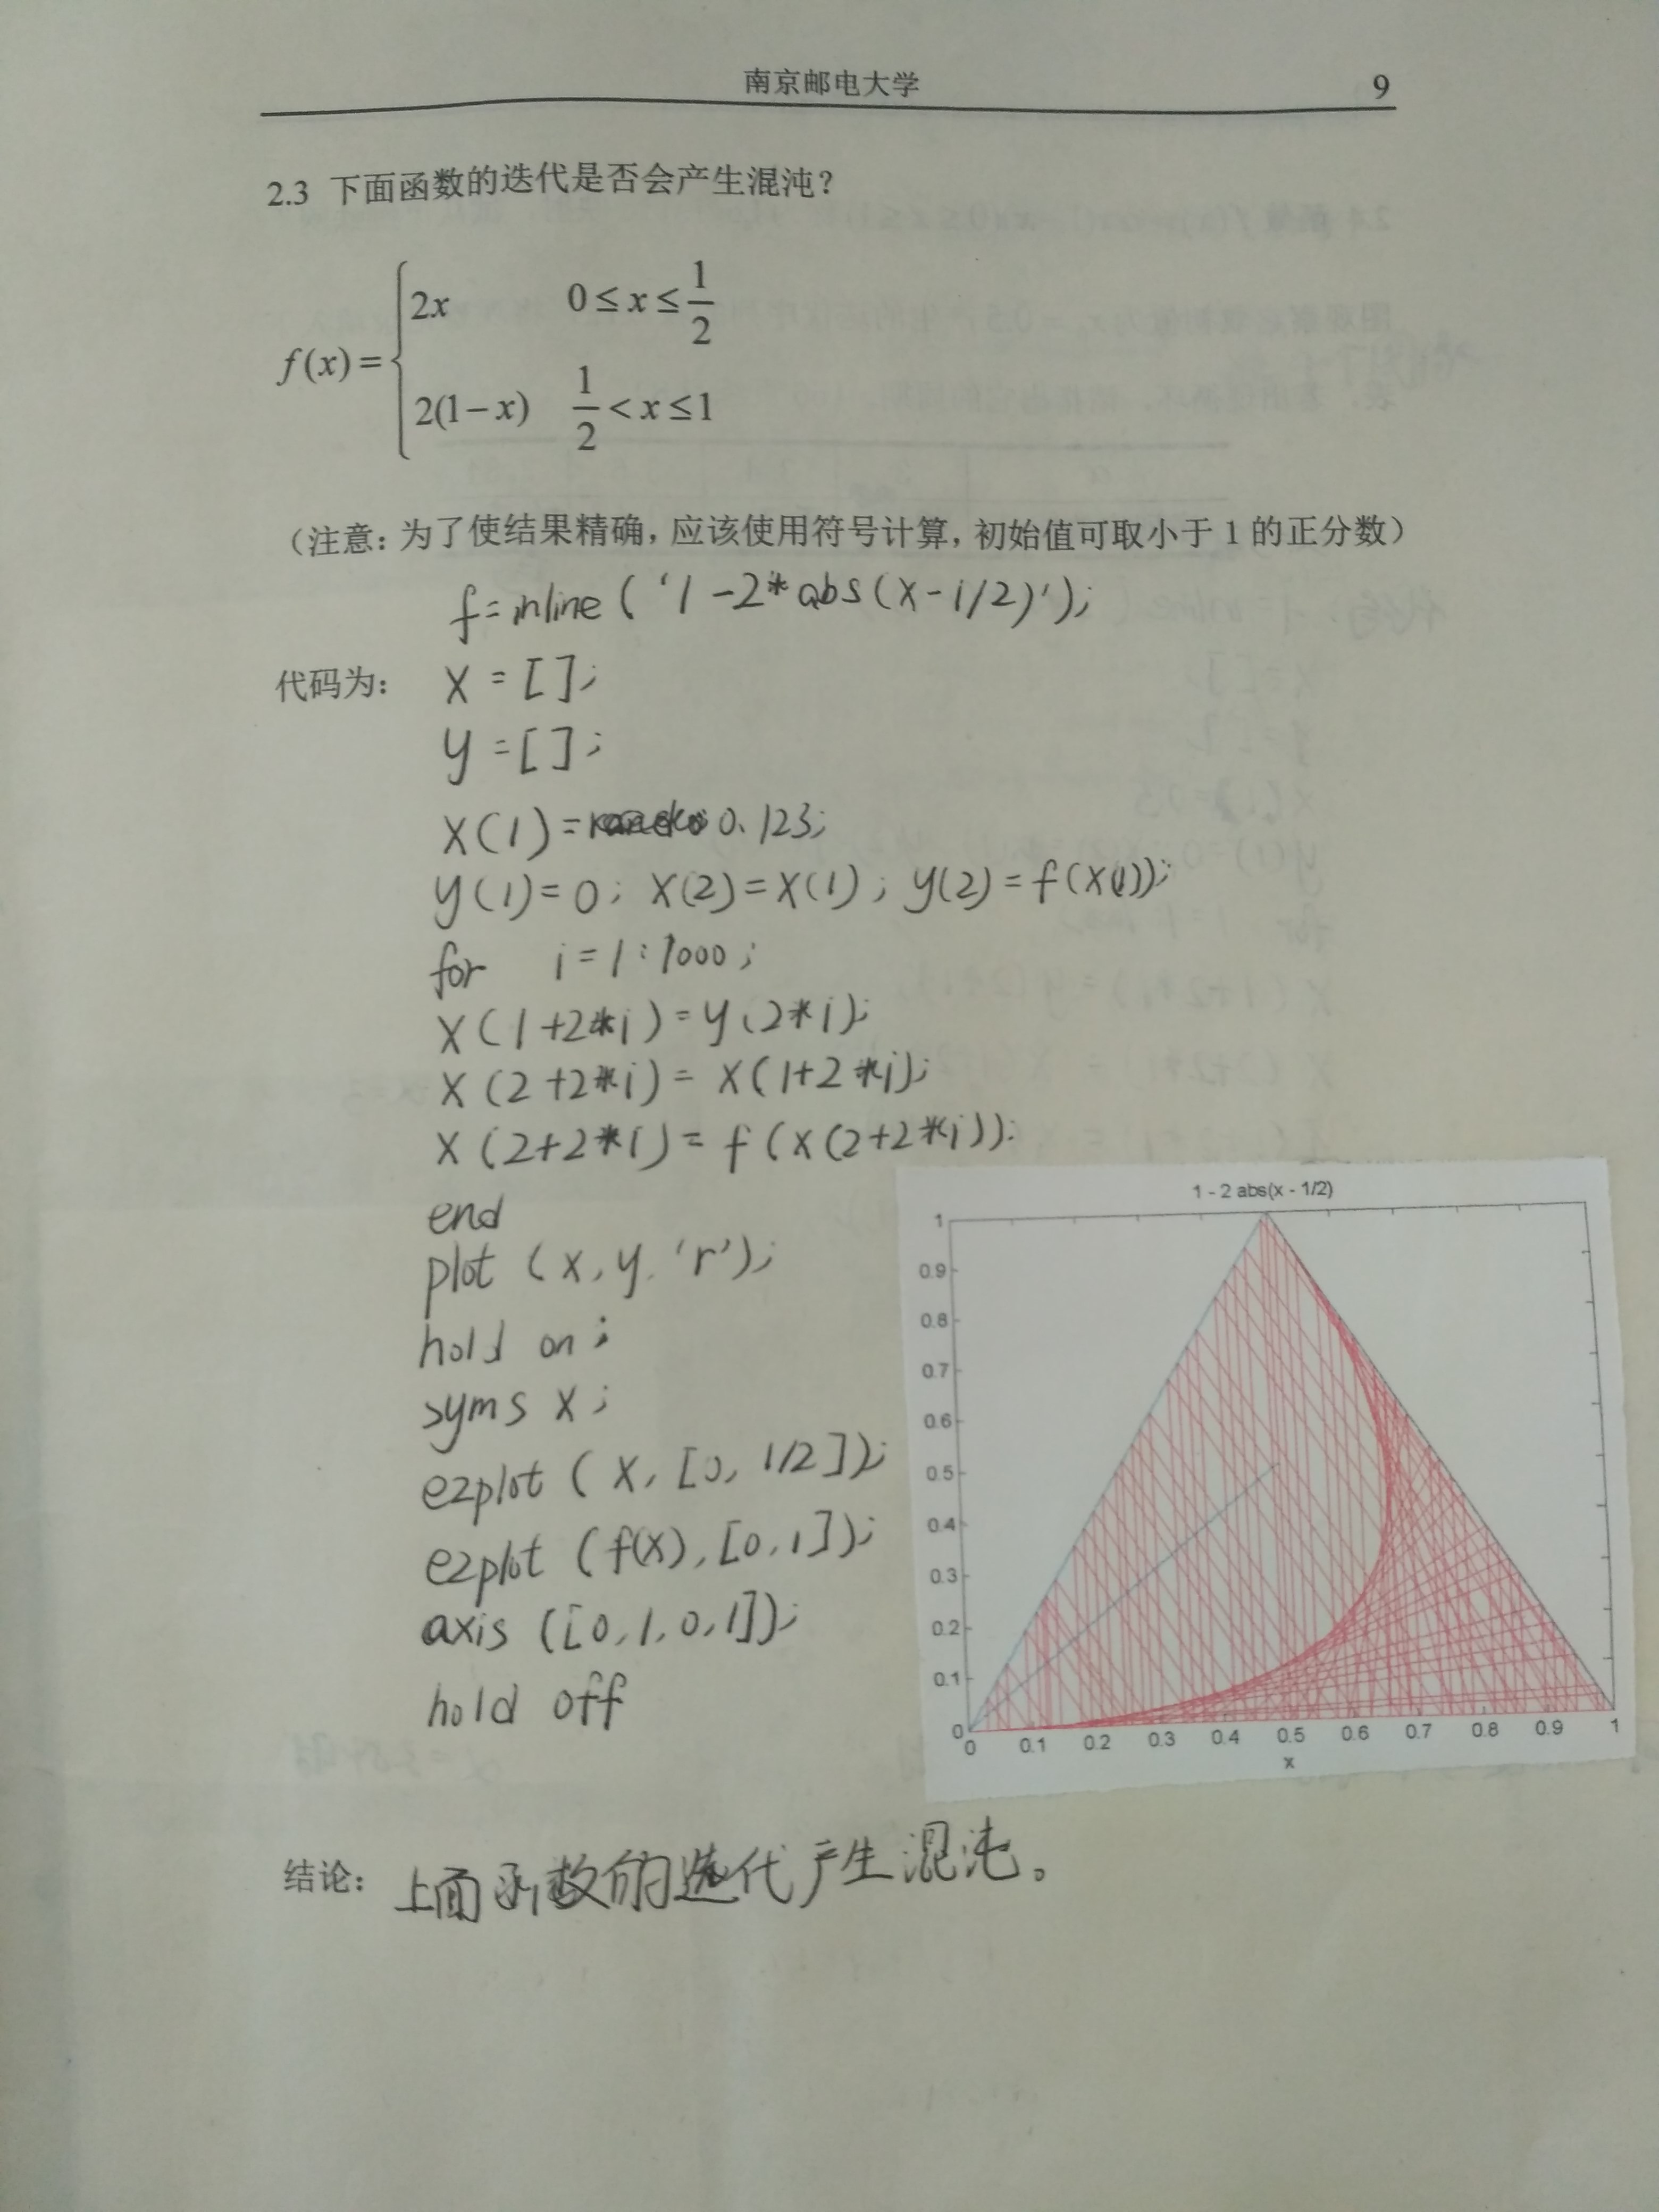 南京邮电大学 9
2.3 下面函数的迭代是否会产生混沌？
f(x) = { 2x 0 ≤ x ≤ 1/2
2(1−x) 1/2 < x ≤ 1
（注意：为了使结果精确，应该使用符号计算，初始值可取小于 1 的正分数）
f=inline('1-2*abs(x-1/2)');
代码为： x=[];
y=[];
x(1)=0.123;
y(1)=0; x(2)=x(1); y(2)=f(x(1));
for i=1:1000;
x(1+2*i)=y(2*i);
x(2+2*i)=x(1+2*i);
x(2+2*i)=f(x(2+2*i));
end
plot(x,y,'r');
hold on;
syms x;
ezplot(x,[0,1/2]);
ezplot(f(x),[0,1]);
axis([0,1,0,1]);
hold off
1 - 2 abs(x - 1/2)
1
0.9
0.8
0.7
0.6
0.5
0.4
0.3
0.2
0.1
0
0 0.1 0.2 0.3 0.4 0.5 0.6 0.7 0.8 0.9 1
x
结论：上面函数的迭代产生混沌。